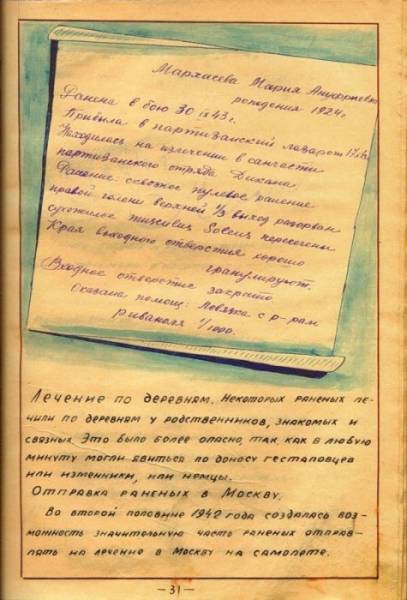 Мархасева Мария Ануфриевна
рождения 1924г.
Ранена в бою 30 IX 43г.
Прибыла в партизанский лазарет
Находилась на излечении в санчасти
партизанского отряда
Ранение: сквозное пулевое ранение
правой голени верхней 1/3 выход разорван
сухожилие musculus Soleus пересечены
Края выходного отверстия хорошо
гранулируют.
Входное отверстие закрыто
Оказана помощ: повязка с р-рам
Риваноля 1/1000.
Лечение по деревням. Некоторых раненых ле-
чили по деревням у родственников, знакомых и
связных. Это было более опасно, так, как в любую
минуту могли явиться по доносу гестаповцев
или изменники, или немцы.
Отправка раненых в Москву.
Во второй половине 1942 года создалась воз-
можность значительную часть раненых отправ-
лять на лечение в Москву на самолете.
-31-